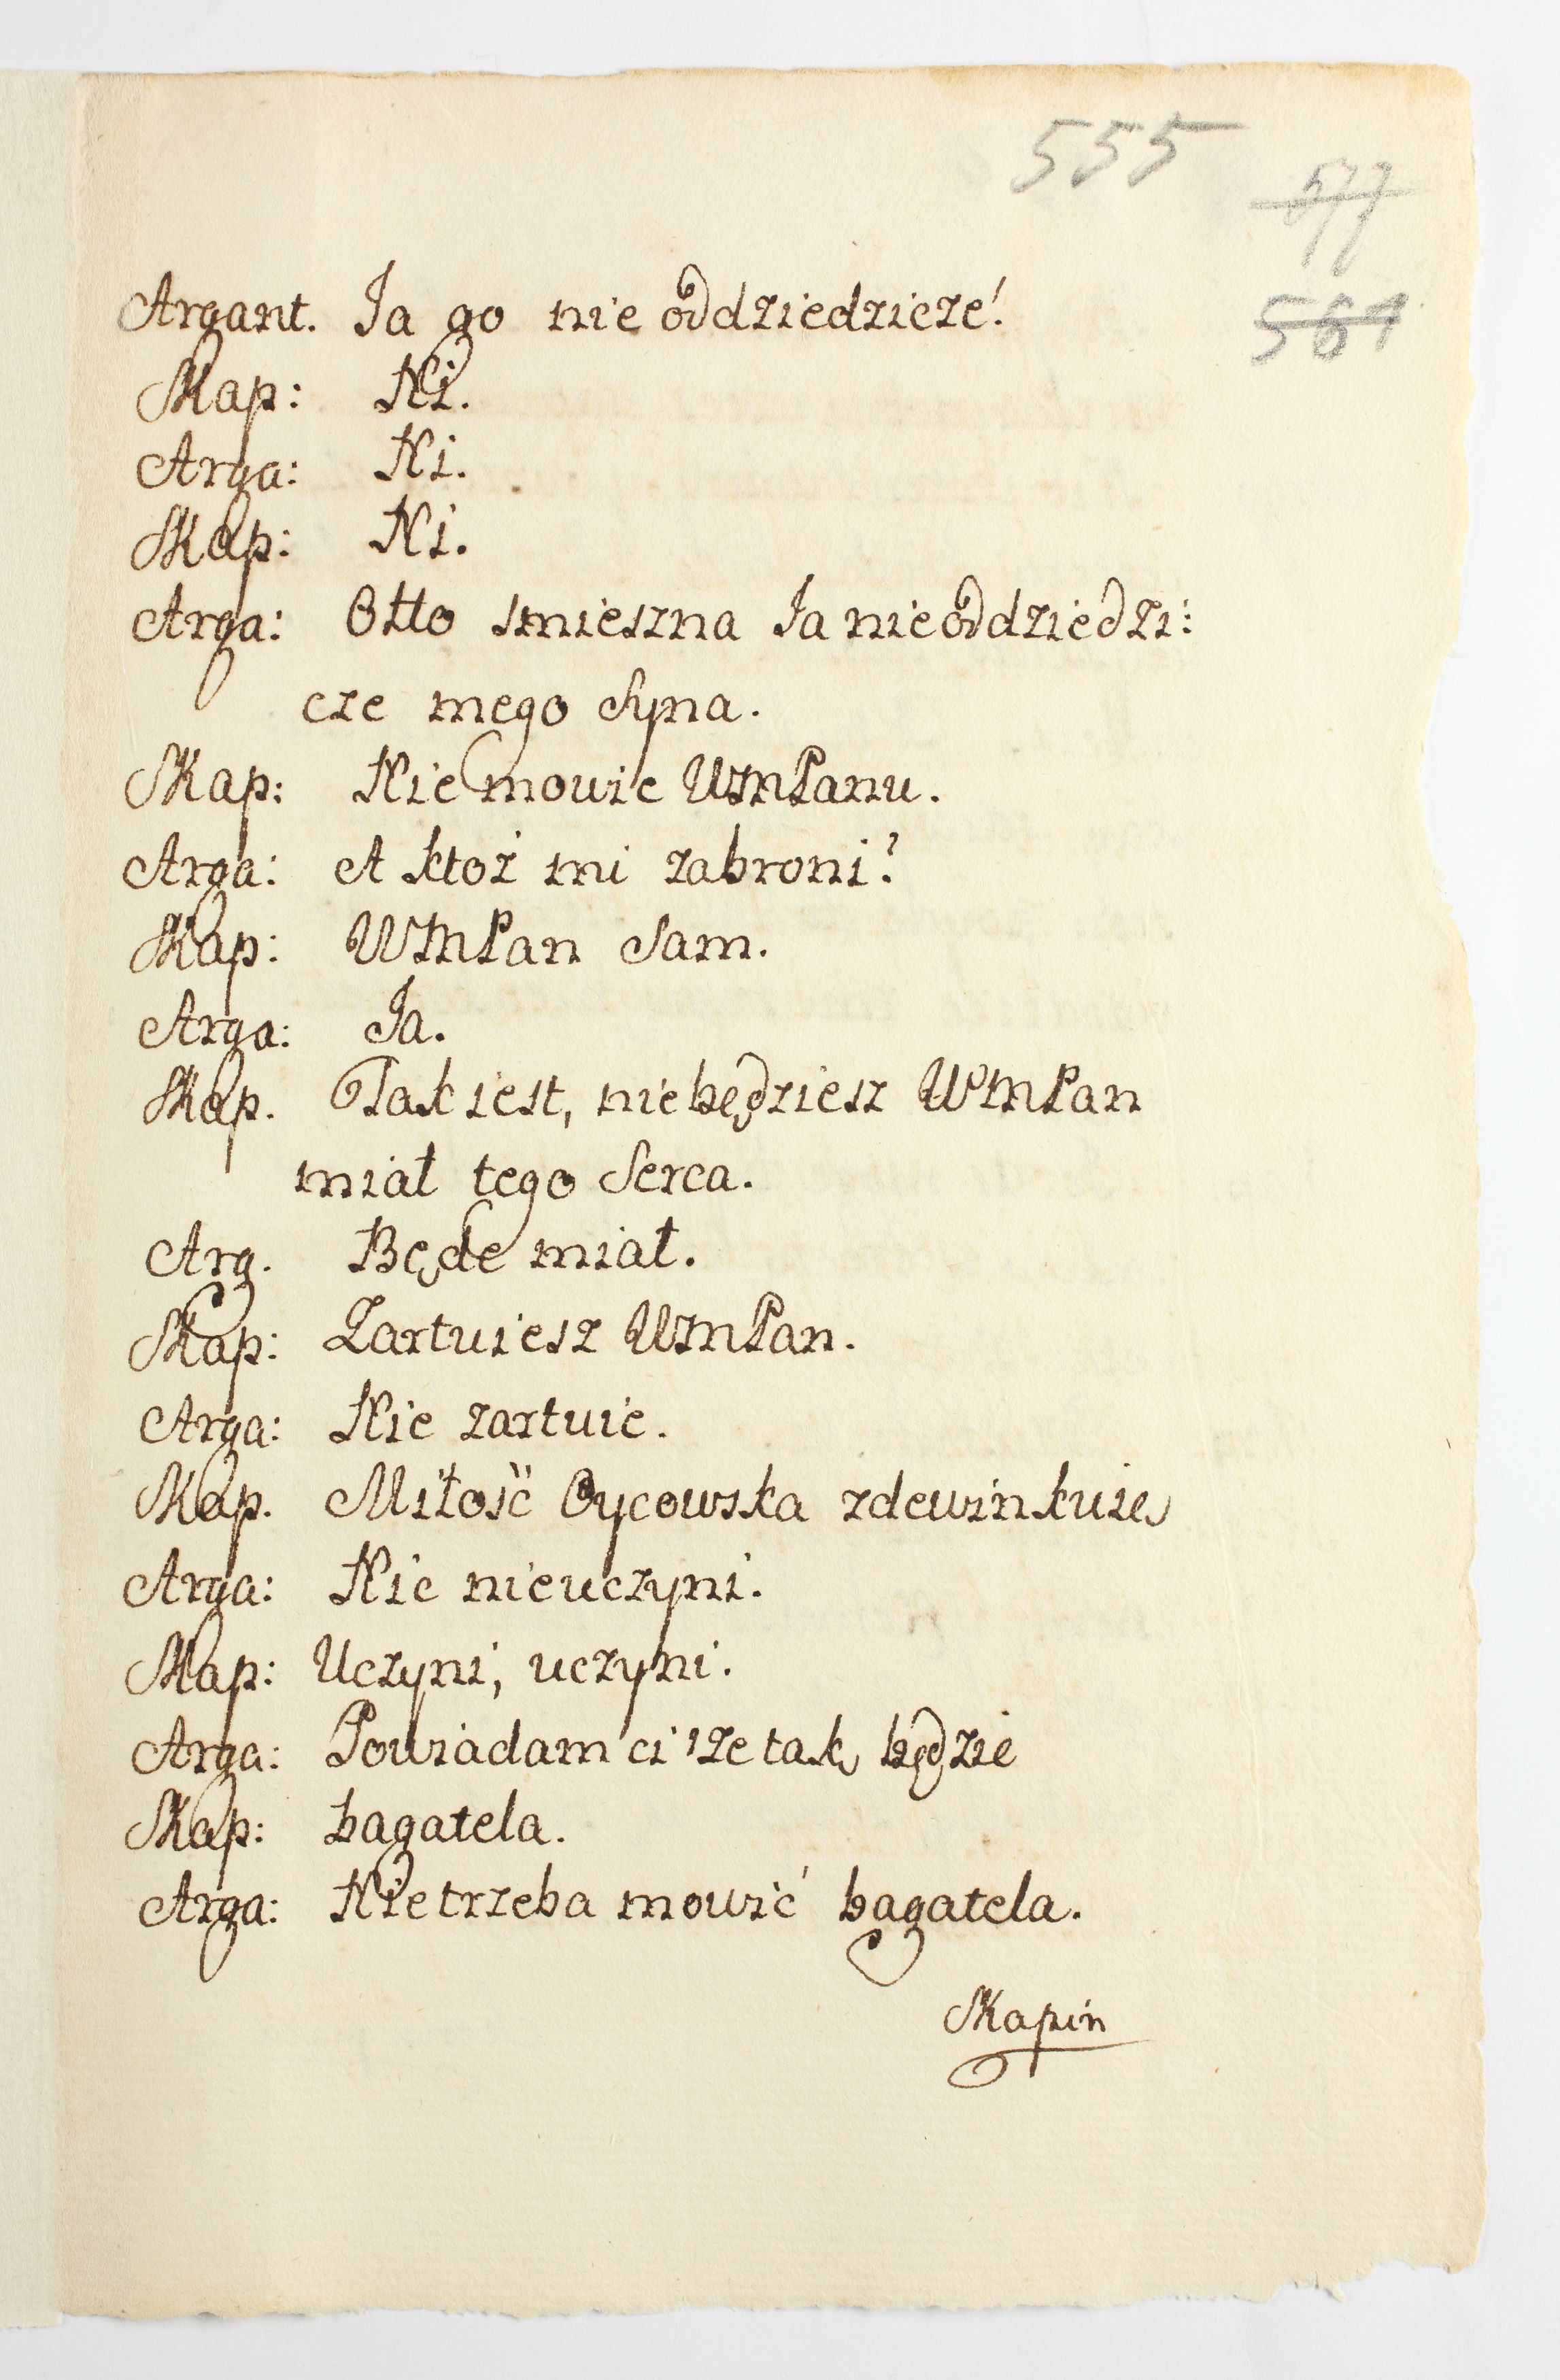 555
577
561
Argant. Ja go nie oddziedzicze!
Skap: Ni.
Arga: Ni.
Skap: Ni.
Arga: Otto smieszna Ja nie oddziedzi:
cze mego Syna.
Skap: Nie mowie WMPanu.
Arga: A ktoż mi zabroni?
Skap: WMPan Sam.
Arga: Ja.
Skap. Tak iest, nie będziesz WMPan
miał tego Serca.
Arg. Będe miał.
Skap: Zartuiesz WMPan.
Arga: Nie zartuie.
Skap. Miłość Oycowska zdewinkuię
Arga: Nic nieuczyni.
Skap: Uczyni, uczyni.
Arga: Powiadam ci iże tak będzie
Skap: bagatela.
Arga: Nie trzeba mowić bagatela.
Skapin